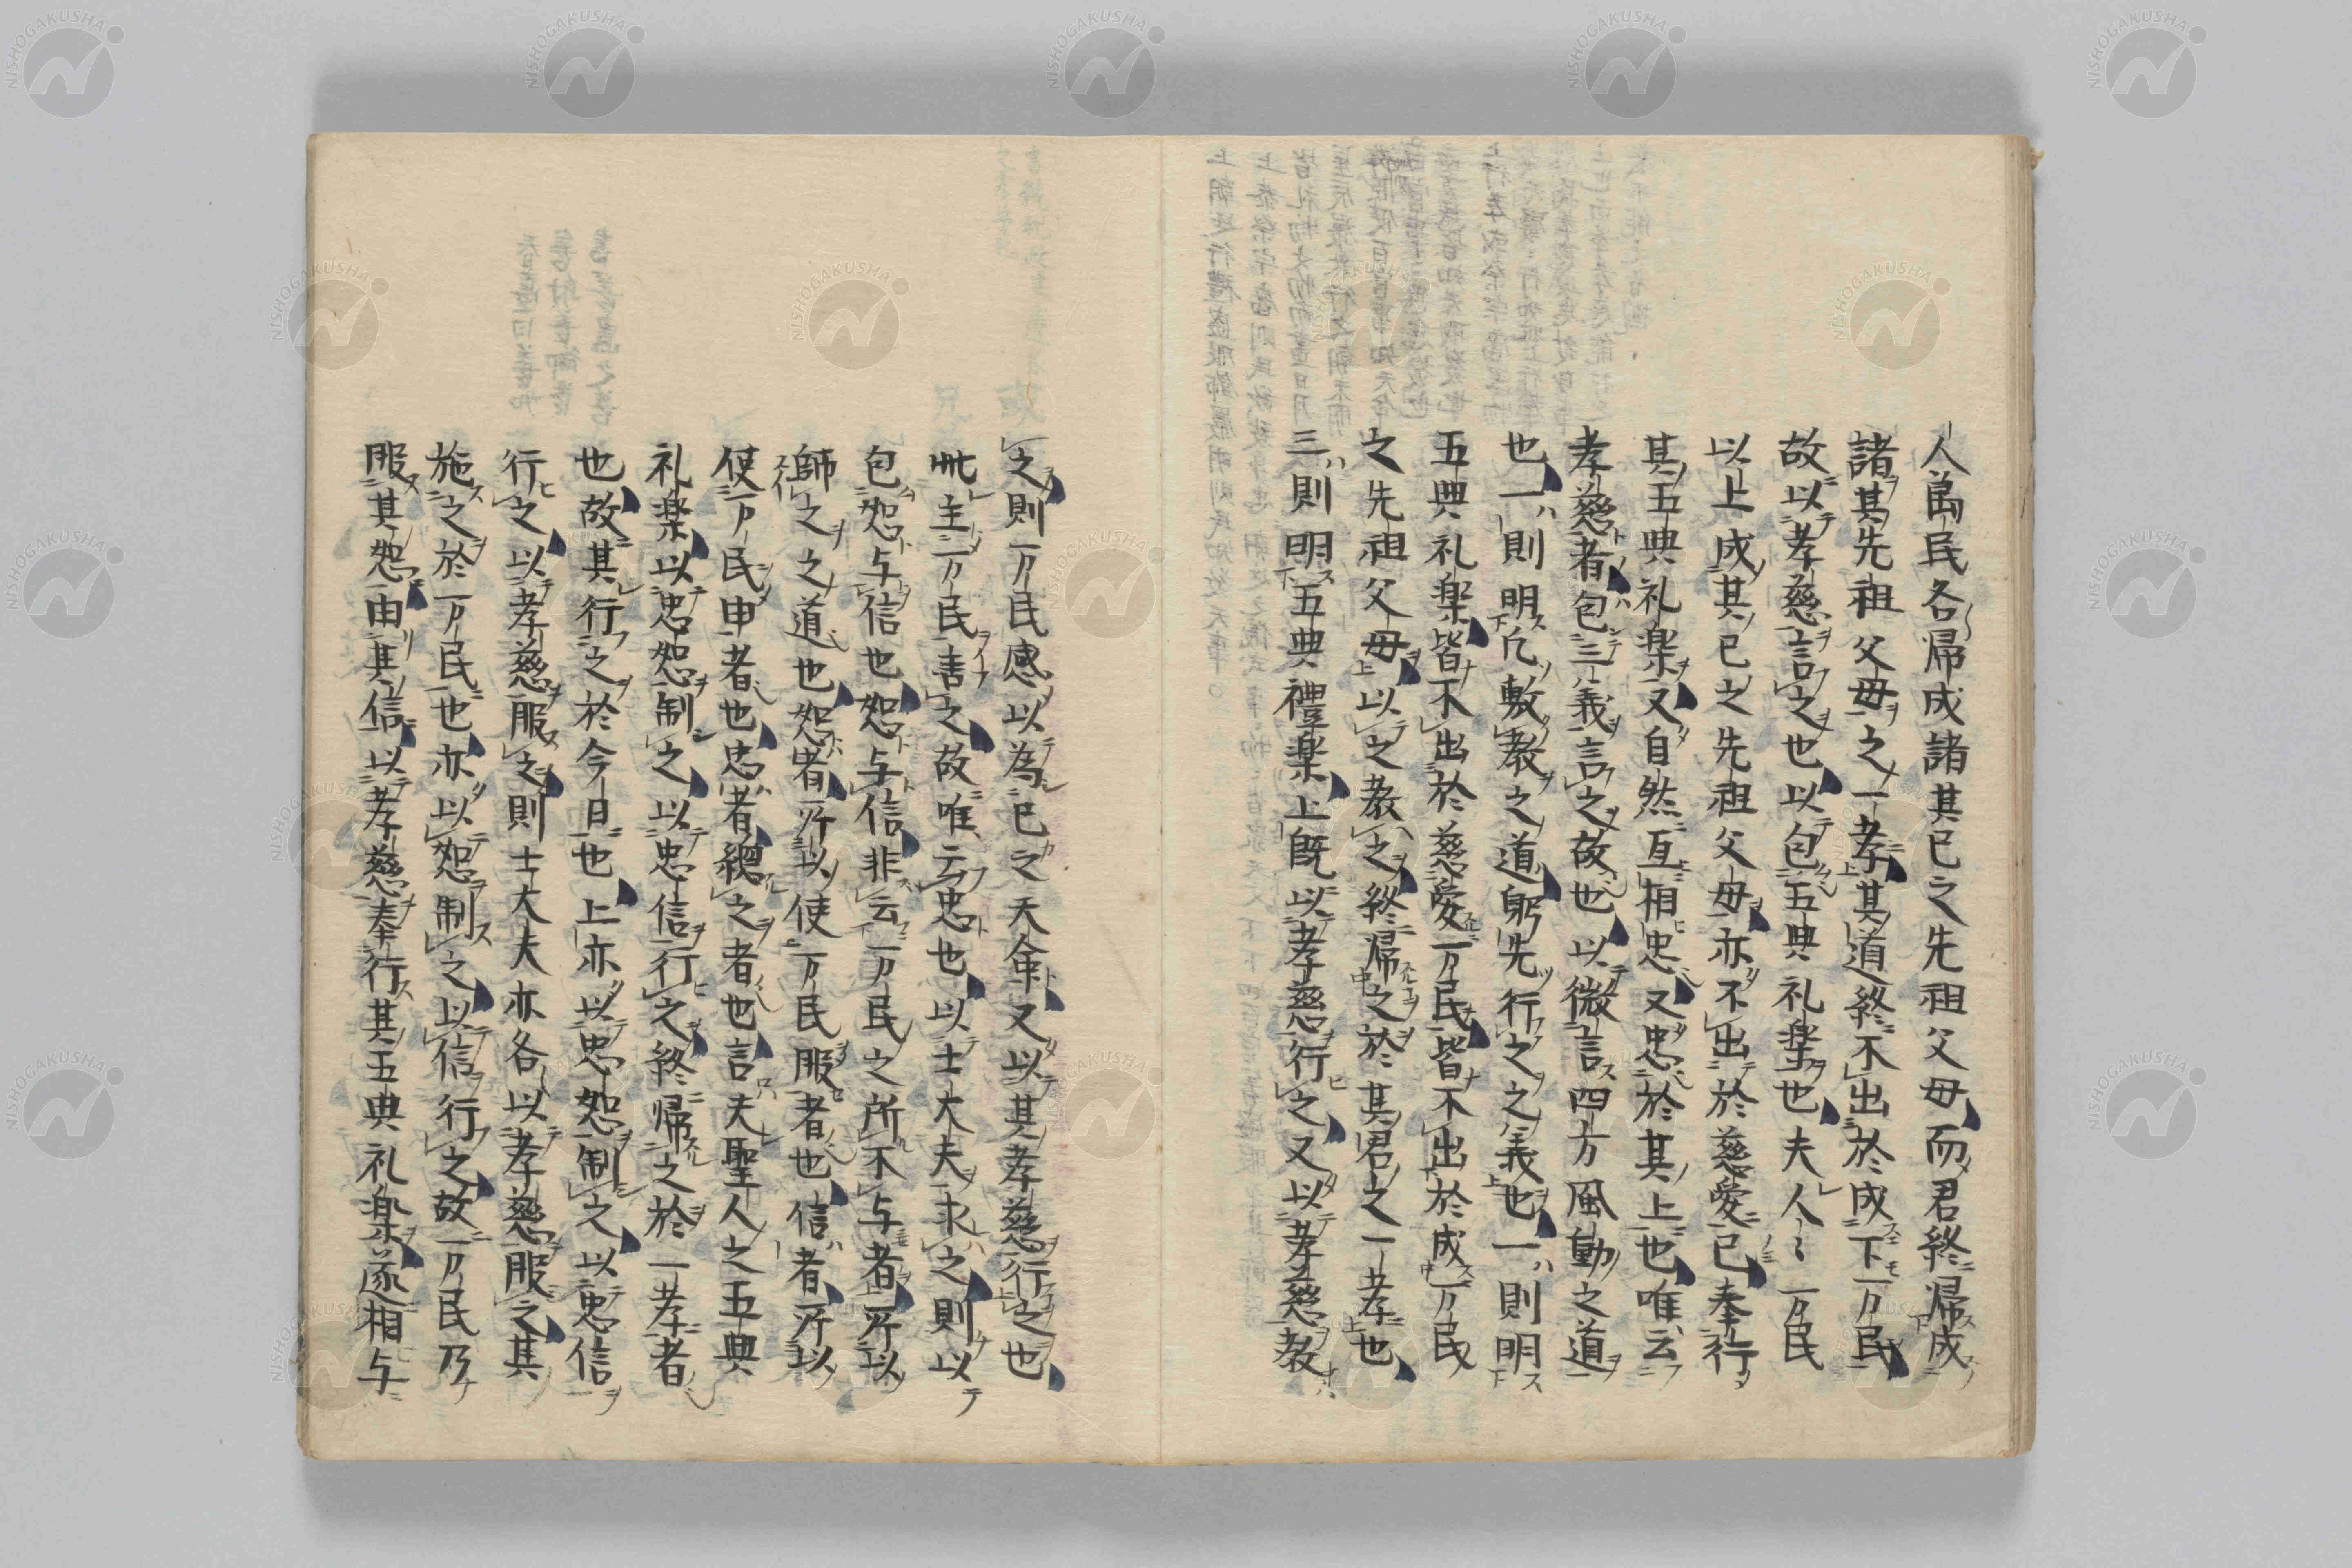 人萬民各帰成諸其已之先祖父母而君終帰成
諸其先祖父母之一孝其道終不出於成下万民
故以孝慈言之也以包五典礼楽也夫人〻万民
以上成其已之先祖父母亦不出於慈愛已奉行
其五典礼楽又自然互相忠又忠於其上也唯云
孝慈者包三義言之故也以微言四方風動之道
也一則明凡敷教之道躬先行之之義也一則明
五典礼楽皆不出於慈愛万民皆不出於成万民
之先祖父母以之教之終帰之於其君之一孝也
三則明五典禮楽上既以孝慈行之又以孝慈教
之則万民感以為已之天命又以其孝慈行之也
此主万民善之故唯云忠也以士大夫求之則以
包恕与信也恕与信非云万民之所不与者所以
師之之道也恕者所以使万民服者也信者所以
使万民申者也忠者總之者也言夫聖人之五典
礼楽以忠恕制之以忠信行之終帰之於一孝者
也故其行之於今日也上亦以忠恕制之以忠信
行之以孝慈服之則士大夫亦各以孝慈服之其
施之於万民也亦以恕制之以信行之故万民乃
服其恕由其信以孝慈奉行其五典礼楽遂相与